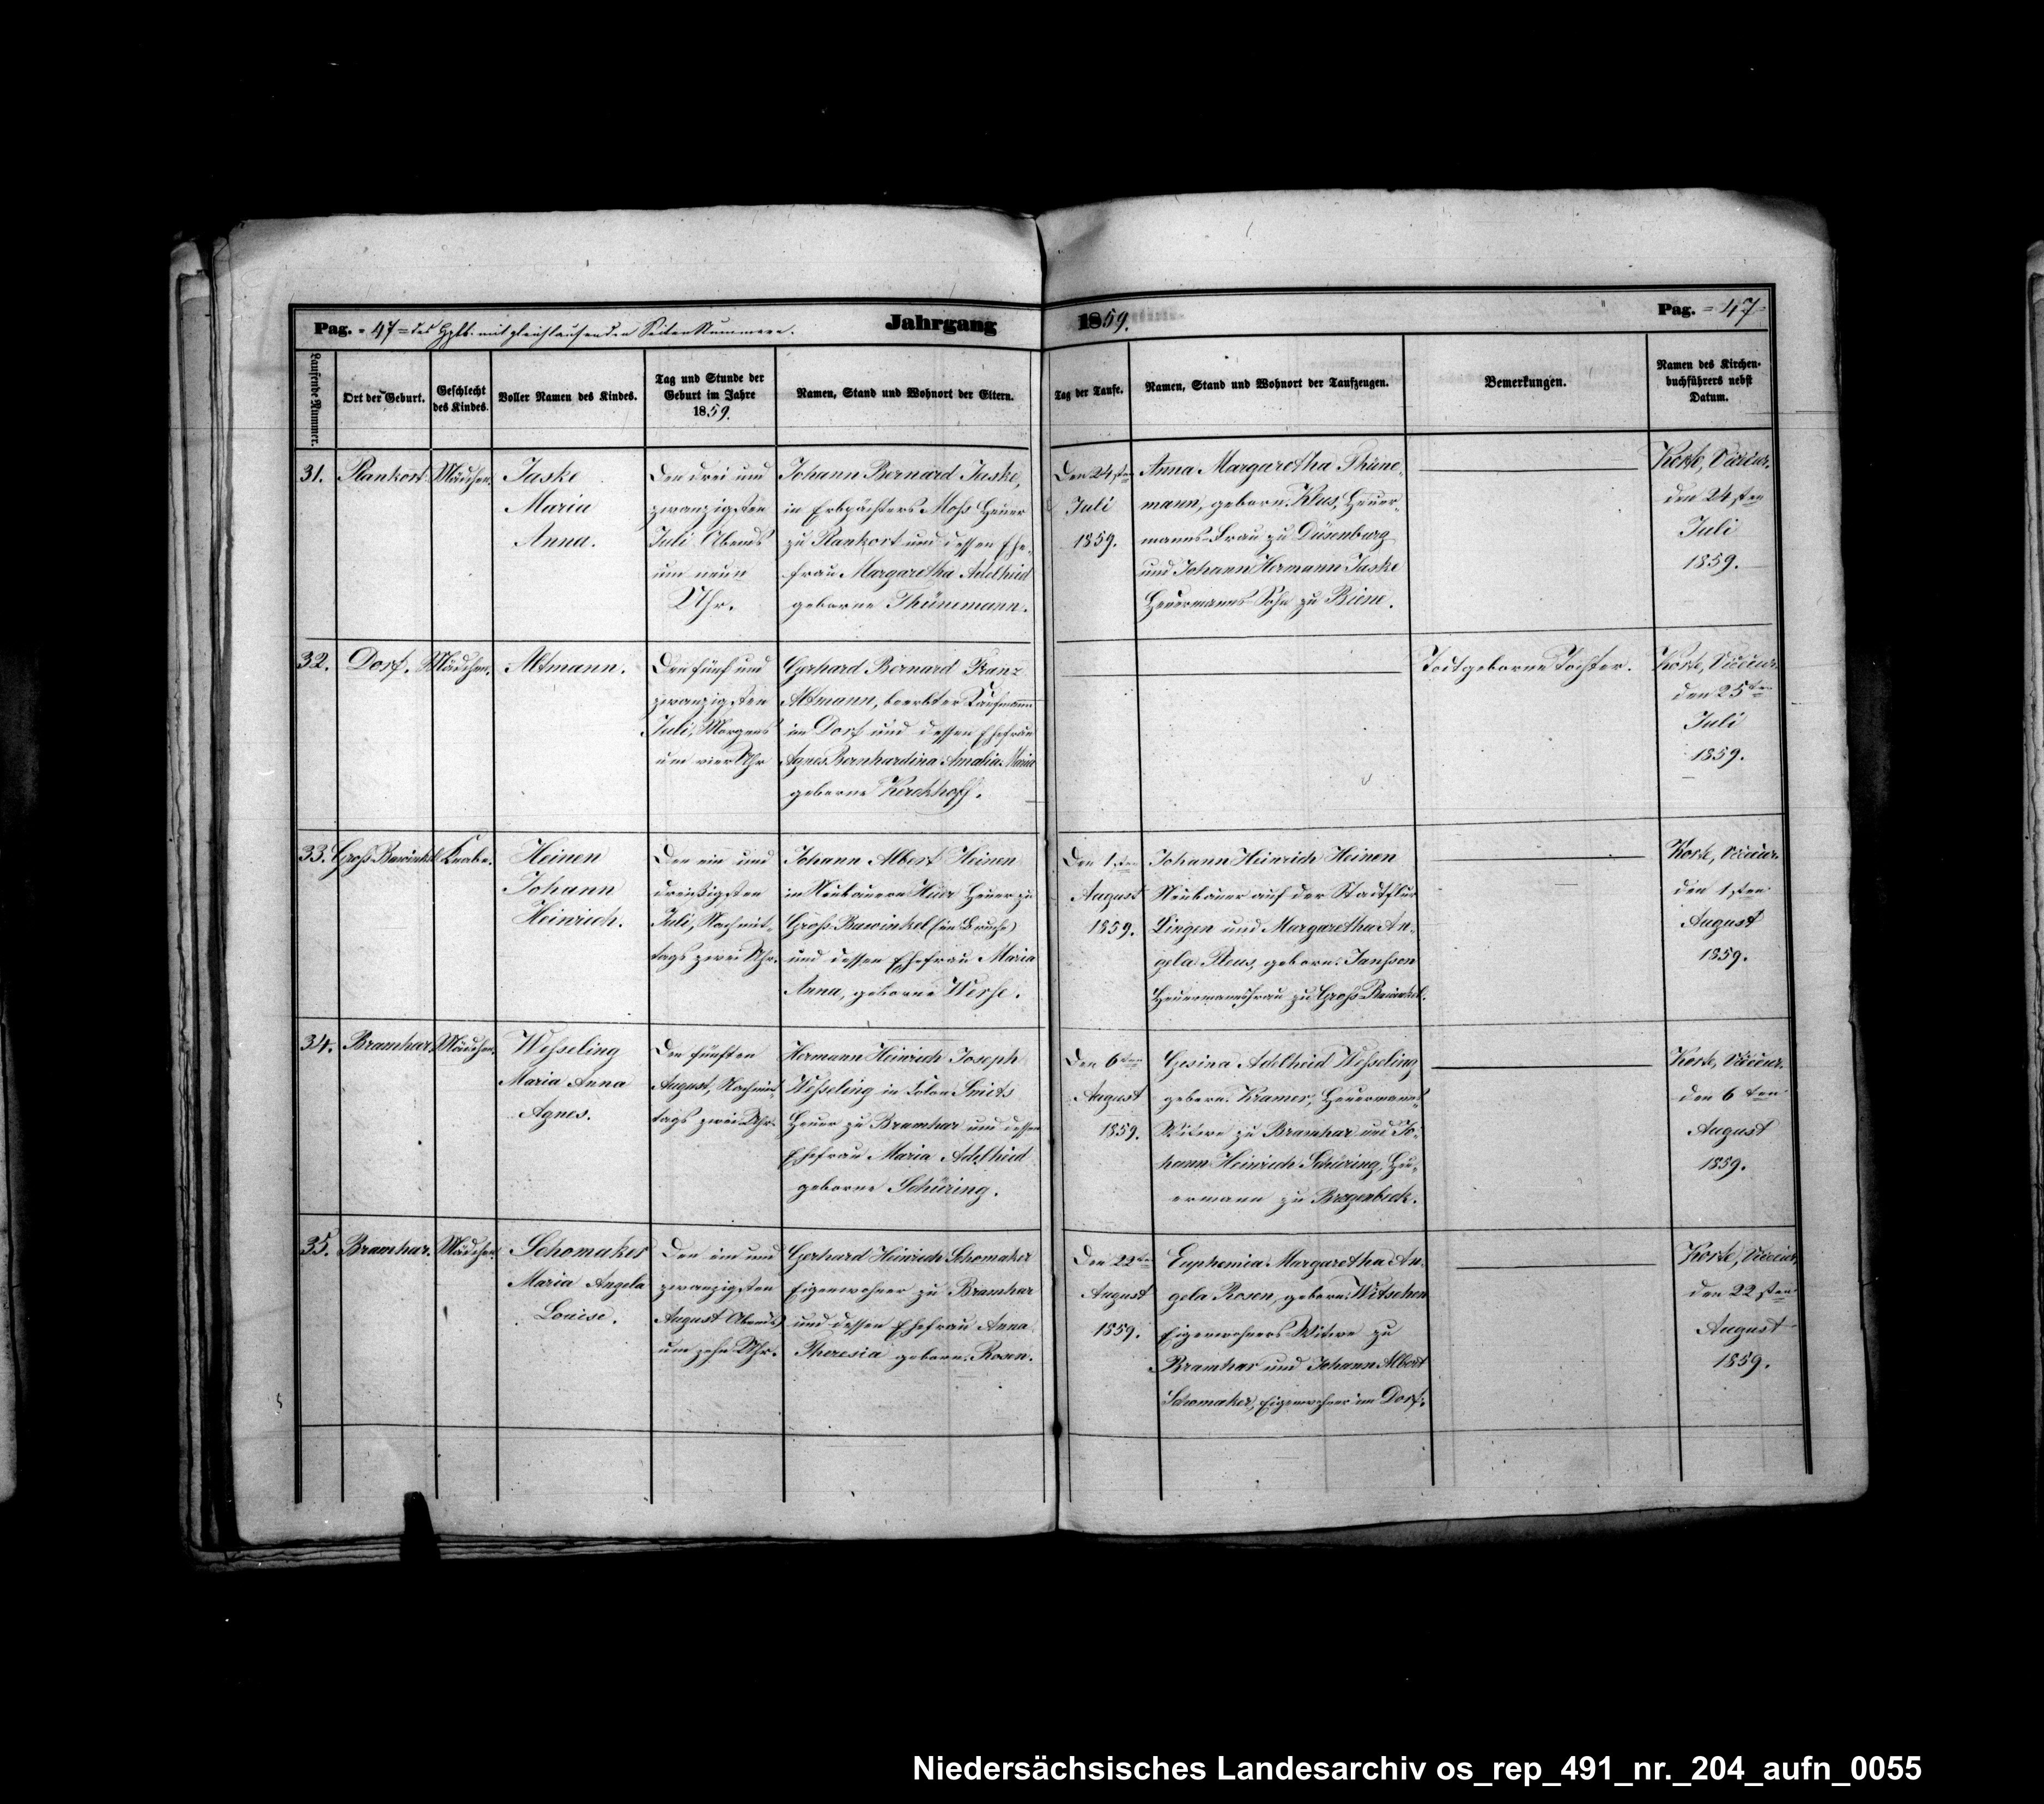 Pag. = 47 = des Hptb. mit gleichlaufenden Seiten Nummern.
Jahrgang 1859.
Pag. = 47 =
Laufende Nummer.
Ort der Geburt.
Geschlecht
des Kindes.
Voller Namen des Kindes.
Tag und Stunde der
Geburt im Jahre
1859.
Namen, Stand und Wohnort der Eltern.
Tag der Taufe.
Namen, Stand und Wohnort der Taufzeugen.
Bemerkungen.
Namen des Kirchen-
buchführers nebst
Datum.
31.
Plankort
Mädchen.
Jaske
Maria
Anna.
Den drei und
zwanzigsten
Juli Abends
um neun
Uhr.
Johann Bernard Jaske,
in Erbpächters Mohs Heuer
zu Plankort und dessen Ehe-
frau Margaretha Adelheid
geborne Thünemann.
Den 24sten
Juli
1859.
Anna Margaretha Thüne-
mann, geborn. Klus, Heuer-
manns-Frau zu Düsenburg
und Johann Hermann Jaske
Heuermanns-Sohn zu Biene.
Korte, Vicecur.
den 24sten
Juli
1859.
32.
Dorf.
Mädchen.
Altmann.
Den fünf und
zwanzigsten
Juli, Morgens
um vier Uhr
Gerhard Bernard Franz
Altmann, beerbter Kaufmann
im Dorf und dessen Ehefrau
Agnes Bernhardina Amalia Maria
geborne Kerckhoff.
Todtgeborne Tochter.
Korte, Vicecur.
den 25ten
Juli
1859.
33.
Groß Bawinkel
Knabe.
Heinen
Johann
Heinrich.
Den ein und
dreißigsten
Juli, Nachmit-
tags zwei Uhr.
Johann Albert Heinen
in Neubauern Huer Heuer zu
Groß-Bawinkel (im Bruche)
und dessen Ehefrau Maria
Anna, geborne Werse.
Den 1sten
August
1859.
Johann Heinrich Heinen
Neubauer auf der Stadtflur
Lingen und Margaretha An-
gela Pleus, geborn. Janssen
Heuermannsfrau zu Groß-Bawinkel.
Korte, Vicecur.
den 1sten
August
1859.
34.
Bramhar.
Mädchen.
Wesseling
Maria Anna
Agnes.
Den fünften
August, Nachmit-
tags zwei Uhr.
Hermann Heinrich Joseph
Wesseling in Colon Smits
Heuer zu Bramhar und dessen
Ehefrau Maria Adelheid
geborne Schüring.
Den 6ten
August
1859.
Gesina Adelheid Wesseling
geborn. Kramer, Heuermanns-
Witwe zu Bramhar und Jo-
hann Heinrich Schüring, Heu-
ermann zu Bregenbeck.
Korte, Vicecur.
den 6ten
August
1859.
35.
Bramhar.
Mädchen.
Schomaker
Maria Angela
Louise.
Den ein und
zwanzigsten
August Abends
um zehn Uhr.
Gerhard Heinrich Schomaker
Eigenwohner zu Bramhar
und dessen Ehefrau Anna
Theresia geborn. Rosen.
Den 22ten
August
1859.
Euphemia Margaretha An-
gela Rosen, geborn. Witschen
Eigenwohners-Witwe zu
Bramhar und Johann Albert
Schomaker, Eigenwohner im Dorf.
Korte, Vicecur.
den 22sten
August
1859.
Niedersächsisches Landesarchiv os_rep_491_nr._204_aufn_0055